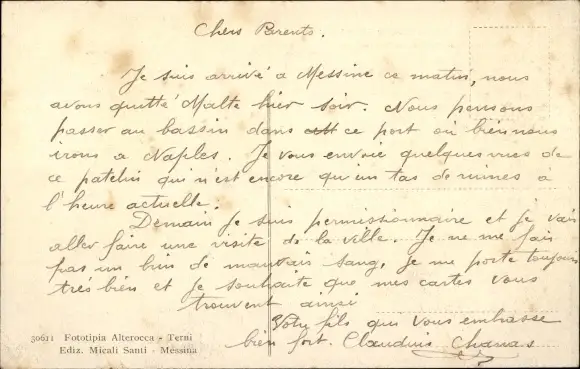 Chers Parents.
Je suis arrivé a Messine ce matin, nous
avons quitté Malte hier soir. Nous pensons
passer au bassin dans ce port où bien nous
irons a Naples. Je vous envoie quelques vues de
ce patelin qui n'est encore qu'un tas de ruines à
l'heure actuelle.
Demain je suis permissionnaire et je vais
aller faire une visite de la ville. Je ne me fais
pas un brin de mauvais sang, je me porte toujours
très bien et je souhaite que mes cartes vous
trouvent ainsi
Votre fils qui vous embrasse
bien fort. Claudius
30611 Fototipia Alterocca - Terni
Ediz. Micali Santi - Messina